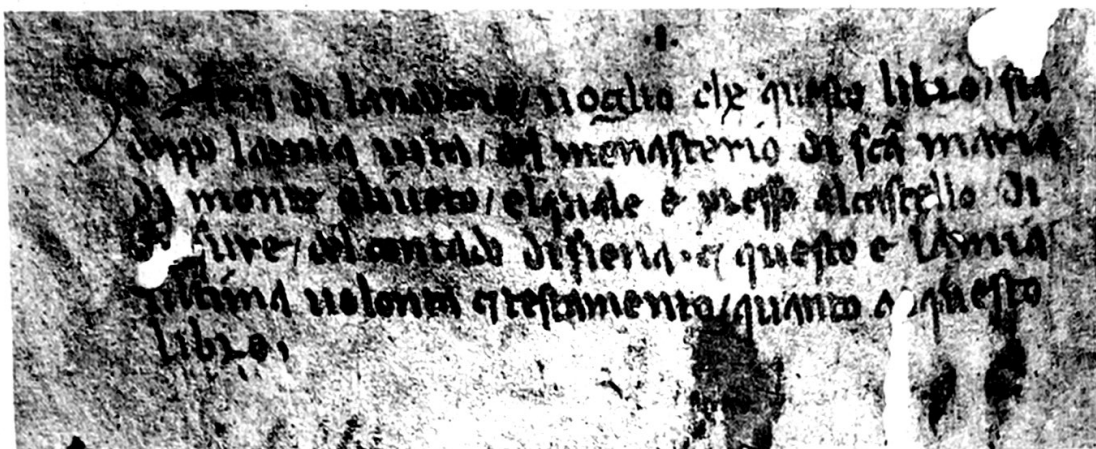 ·I·
di uoglio che questo libro / sia
dopo la mia uita / del monasterio di scā maria
di monte oliueto / elquale e presso alcastello di
/ del contado di siena · et questo e la mia
ultima uolonta et testamento / quanto a questo
libro,